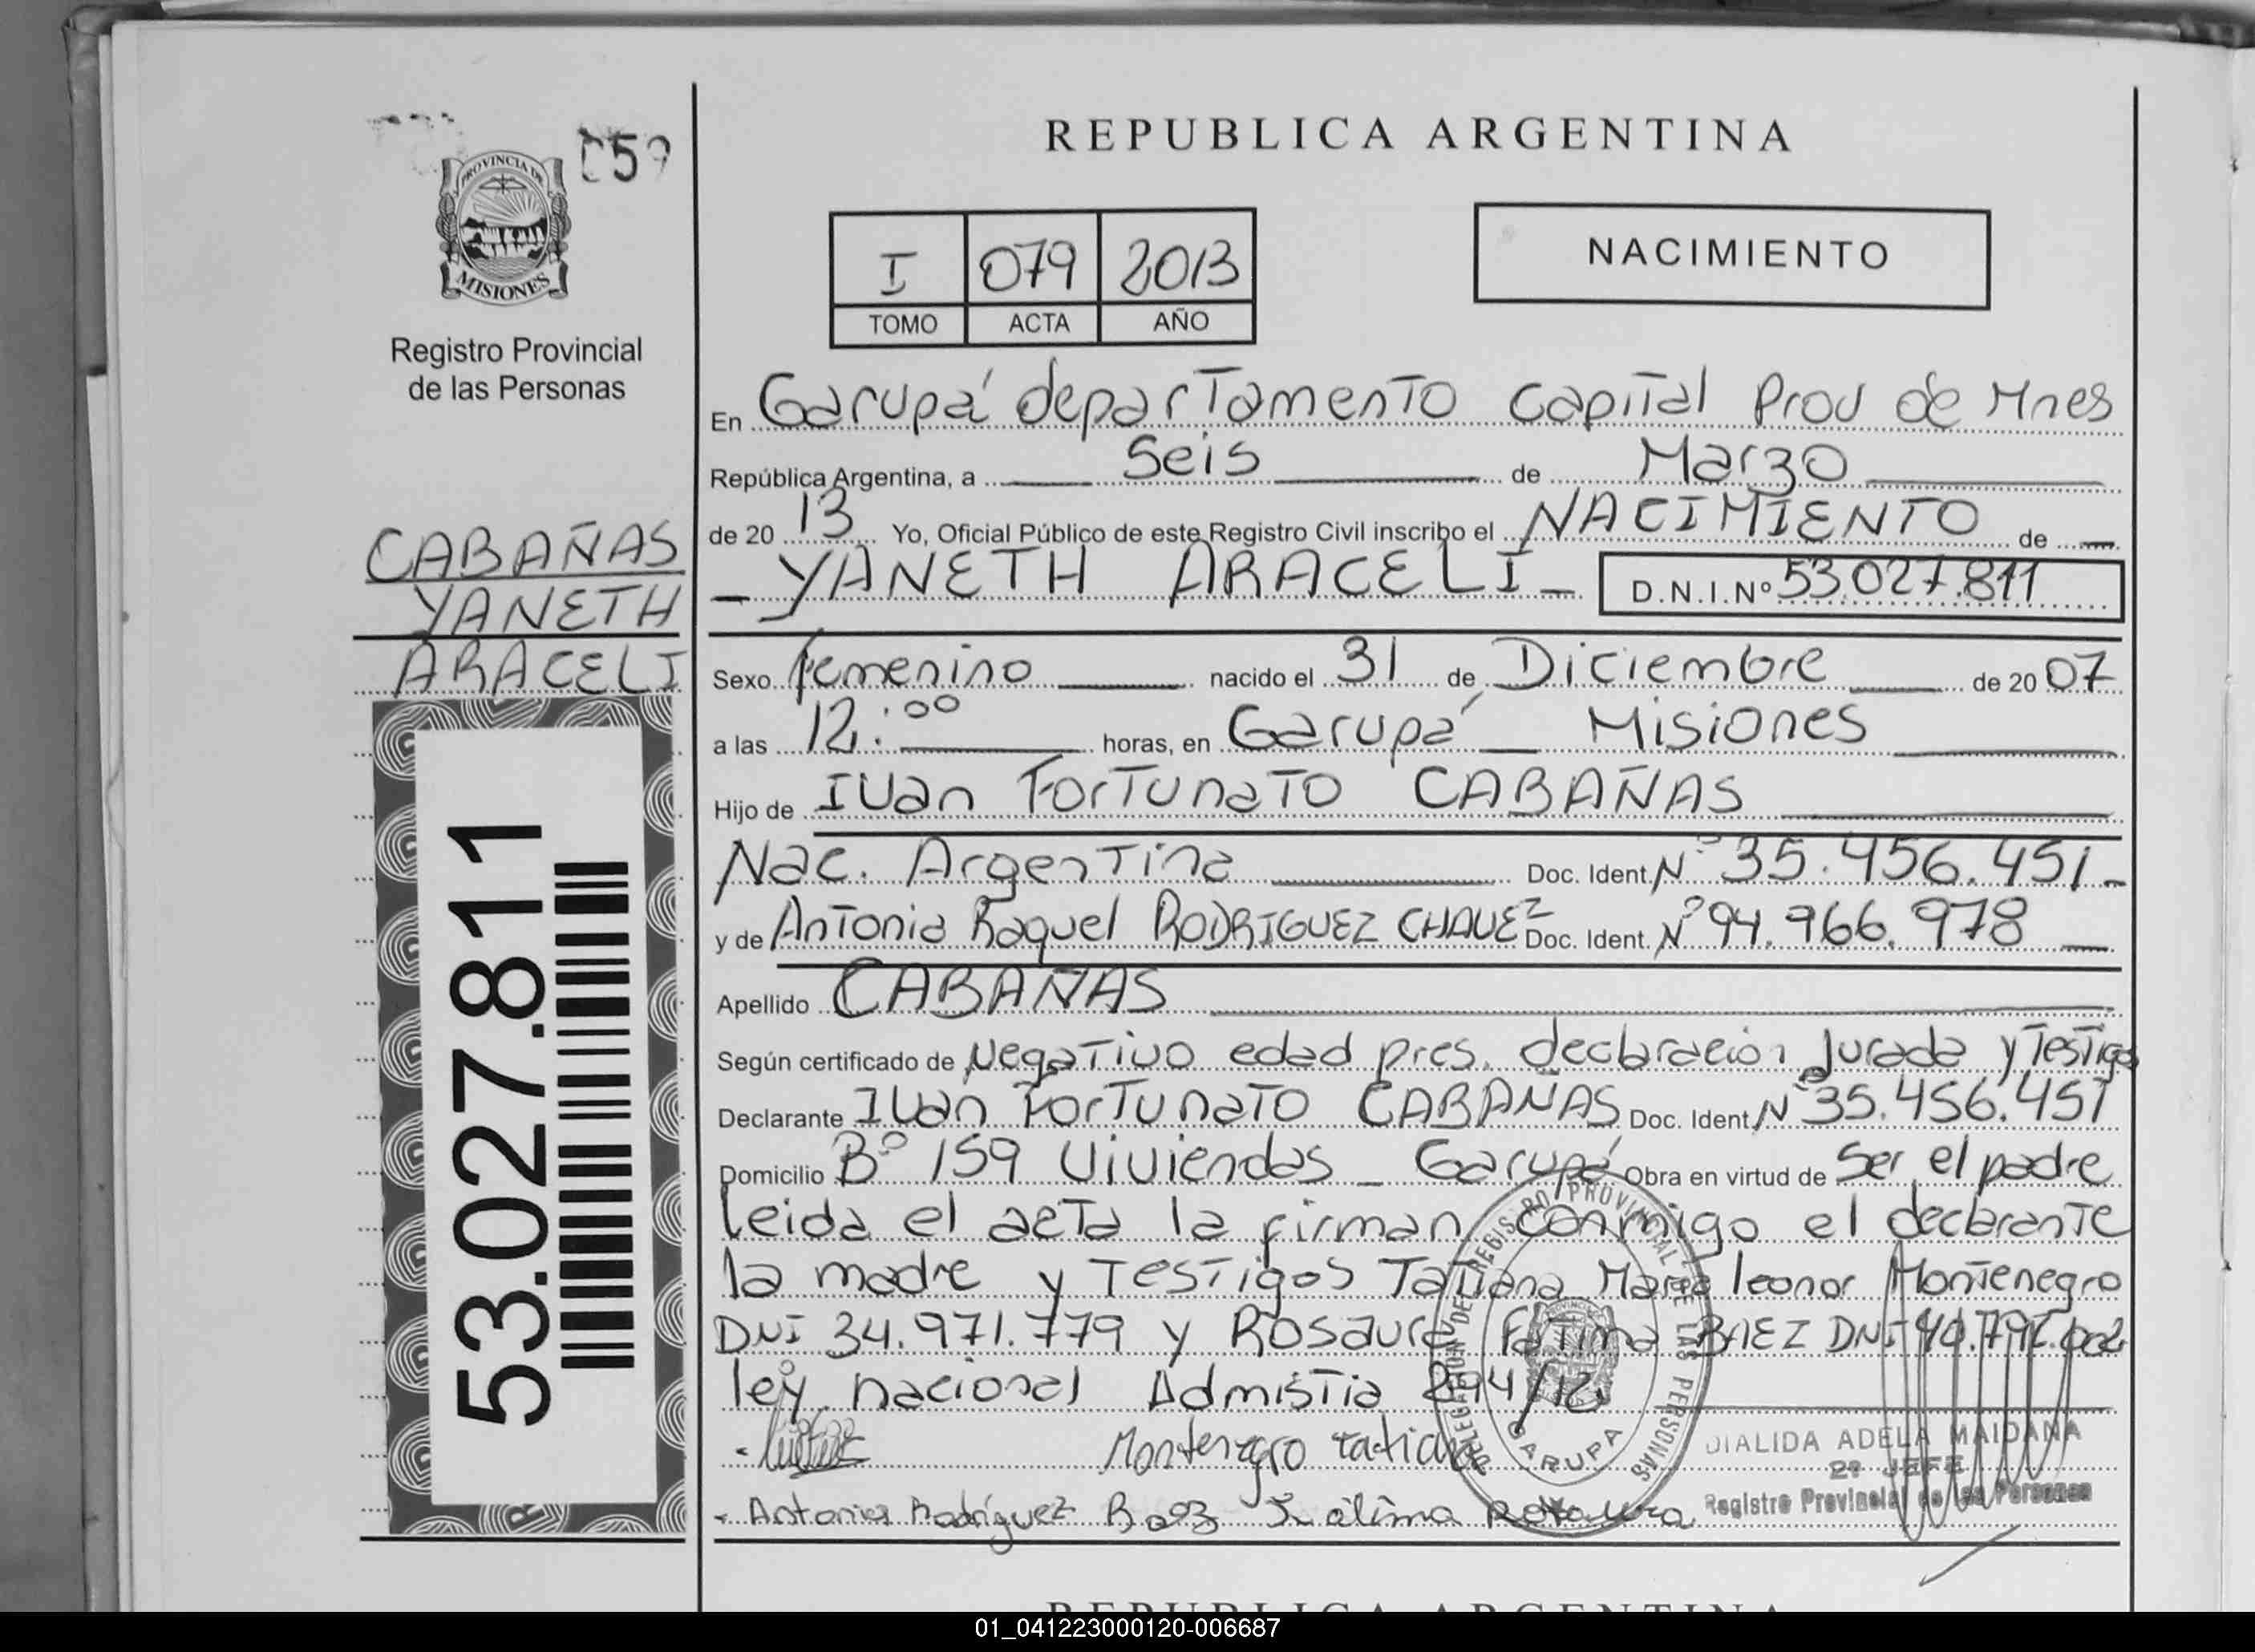 059
PROVINCIA DE
MISIONES
Registro Provincial
de las Personas
CABAÑAS
YANETH
ARACELI
53.027.811
REPUBLICA ARGENTINA
I 079 2013
TOMO ACTA AÑO
NACIMIENTO
En Garupá departamento Capital Prov de Mnes
República Argentina, a Seis de Marzo
de 20 13 Yo, Oficial Público de este Registro Civil inscribo el NACIMIENTO de
YANETH ARACELI D.N.I.Nº 53.027.811
Sexo femenino nacido el 31 de Diciembre de 20 07
a las 12:00 horas, en Garupá Misiones
Hijo de IVan Fortunato CABAÑAS
Nac. Argentina Doc. Ident. Nº 35.456.451
y de Antonia Raquel RODRIGUEZ CHAVEZ Doc. Ident. Nº 94.966.978
Apellido CABAÑAS
Según certificado de Negativo edad pres. declaración Jurada y Testigo
Declarante IVan Fortunato CABAÑAS Doc. Ident. Nº 35.456.451
Domicilio Bº 159 Viviendas _ Garupá Obra en virtud de Ser el padre
leida el acta la firman conmigo el declarante
la madre y Testigos Tatiana Maria leonor Montenegro
DNI 34.971.779 y Rosaura Fatima BAEZ DNI
ley nacional Admistia 294/12.
Montenegro tatiana
Antonia Rodríguez Baez Fatima Rosaura
DELEGACION DEL REGISTRO PROVINCIAL DE LAS PERSONAS
GARUPA
DIALIDA ADELA MAIDANA
2º JEFE
Registro Provincial de las Personas
REPUBLICA ARGENTINA
01_041223000120-006687